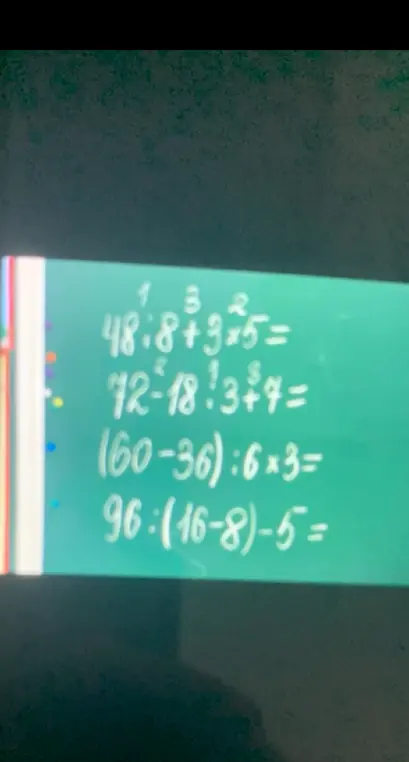 1 3 2
48:8+3×5=
2 1 3
72-18:3+7=
(60-36):6×3=
96:(16-8)-5=